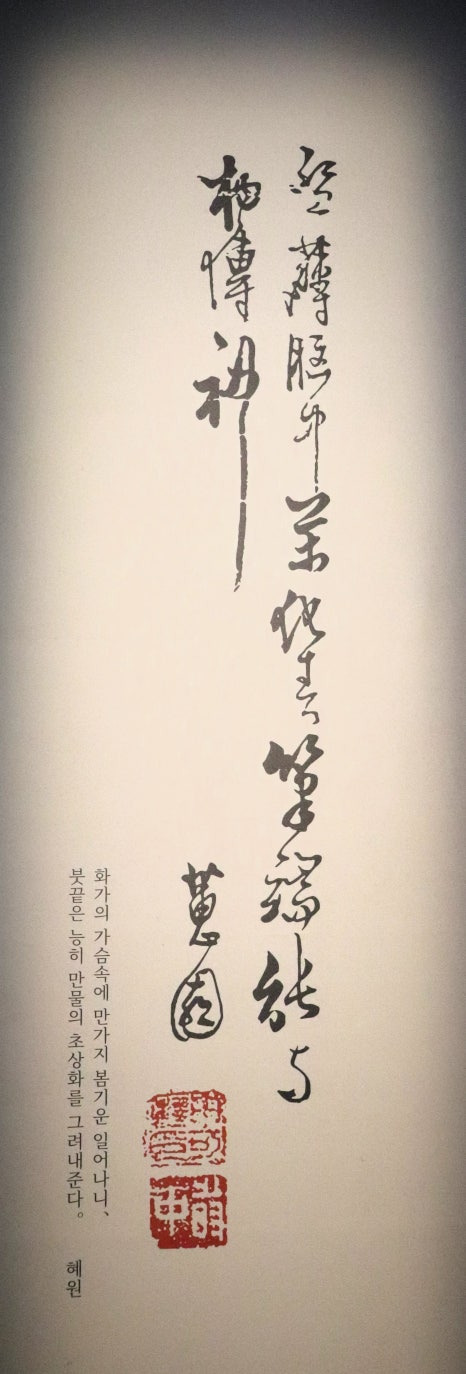 盤薄胸中萬化春筆端能与
物傳神
蕙園
申可權印
時中
화가의 가슴속에 만가지 봄기운 일어나니、
붓끝은 능히 만물의 초상화를 그려내준다。
혜원